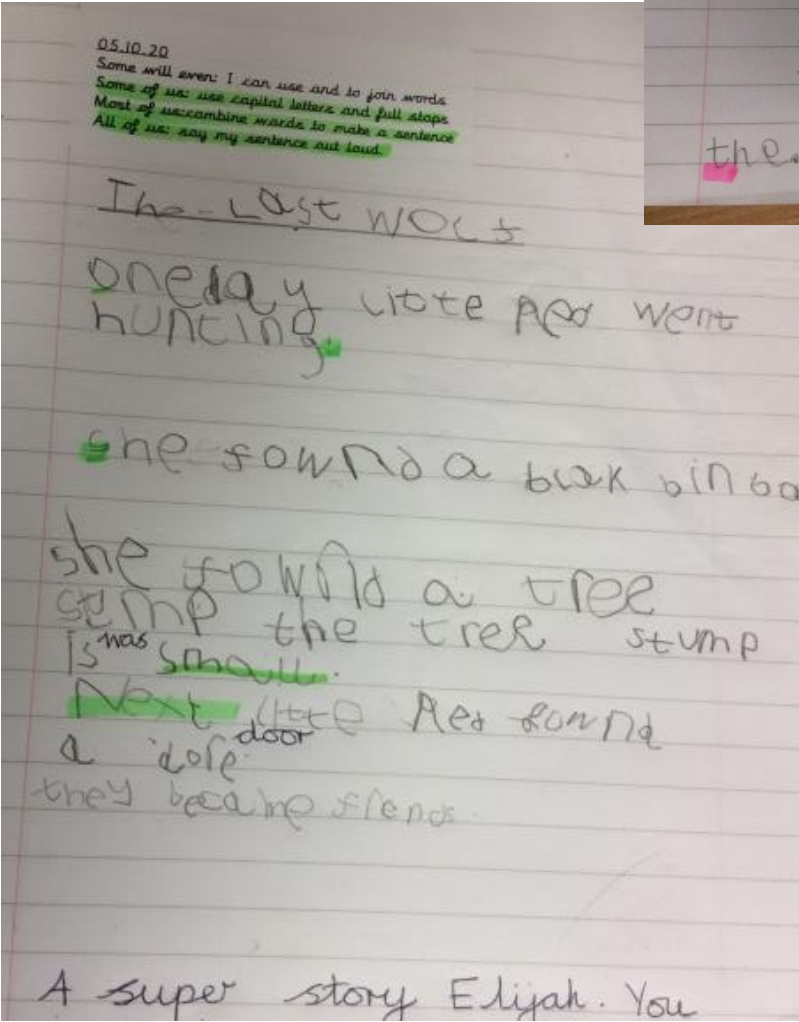 05.10.20
Some will even: I can use and to join words
Some of us: use capital letters and full stops
Most of us:combine words to make a sentence
All of us: say my sentence out loud
the.
The Last WOLf
oneday litte Red went
hunting.
she fownd a blak bin ba
she fownd a tree
stmp the tree stump
is was small.
Next litte Red fownd
door
a dore
they became friends.
A super story Elijah. You